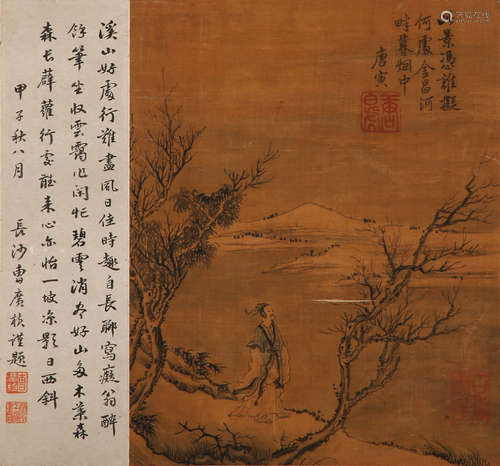 此景憑誰擬
何處金昌河
畔暮烟中
唐寅
溪山好處行難盡風日佳時趣自長聊寫癡翁醉
餘筆坐收雲靄作閑忙碧雲消盡好山多木葉森
森長薜蘿行處來心亦怡一坡涼影日西斜
甲子秋八月
長沙曹廣楨謹題